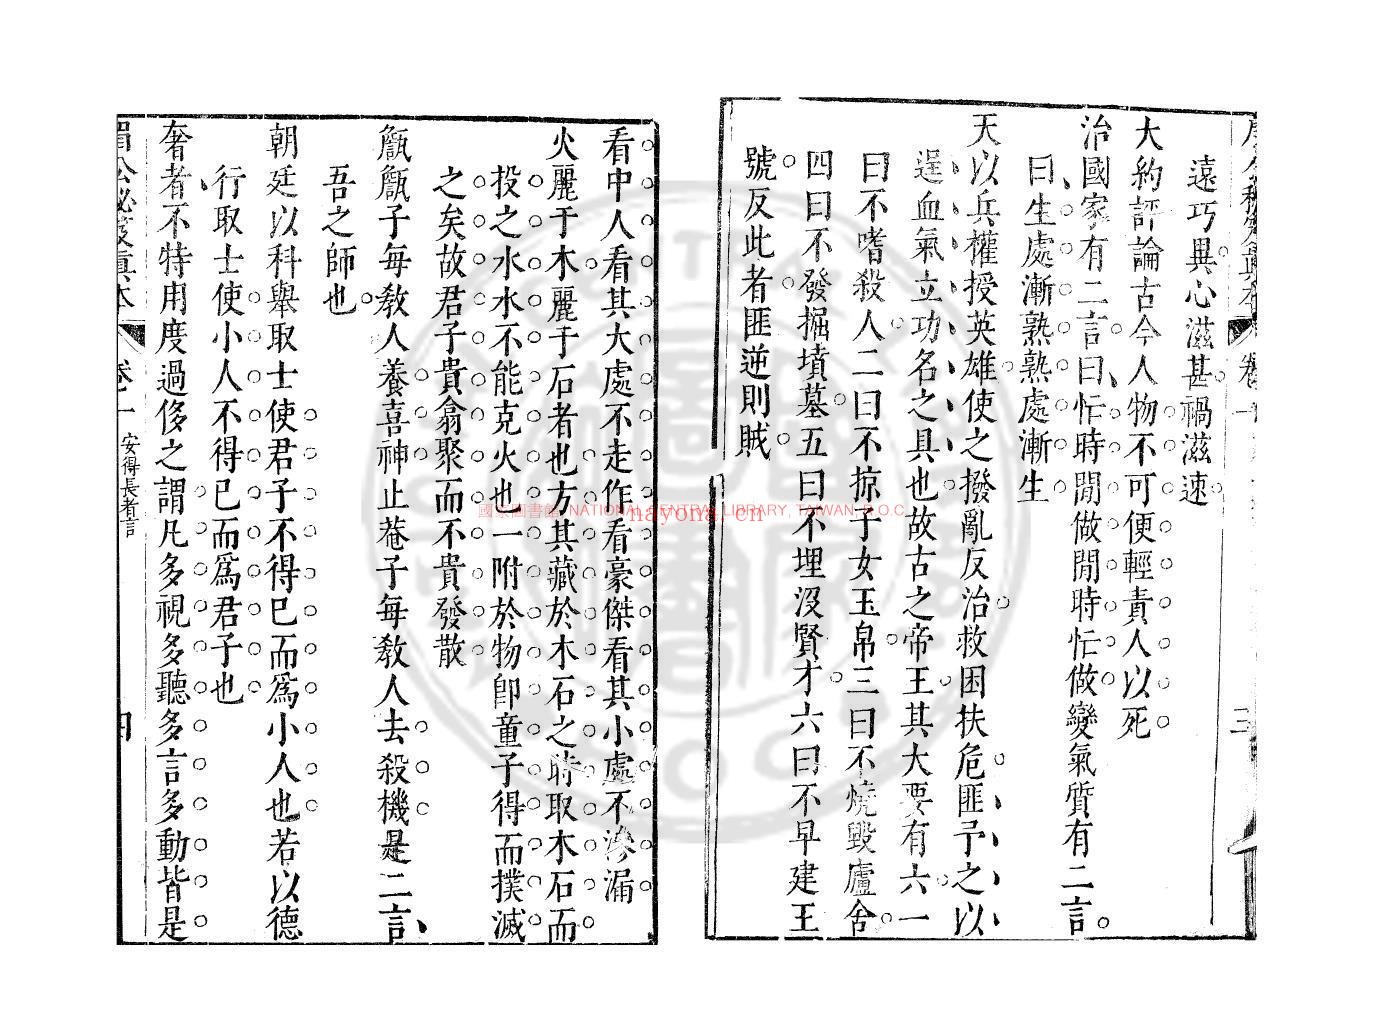 遠巧異心滋甚禍滋速
大約評論古今人物不可便輕責人以死
治國家有二言曰忙時閒做閒時忙做變氣質有二言
曰生處漸熟熟處漸生
天以兵權授英雄使之撥亂反治救困扶危匪予之以
逞血氣立功名之具也故古之帝王其大要有六一
曰不嗜殺人二曰不掠子女玉帛三曰不燒毀廬舍
四曰不發掘墳墓五曰不埋沒賢才六曰不早建王
號反此者匪逆則賊
看中人看其大處不走作看豪傑看其小處不滲漏
火麗于木麗于石者也方其藏於木石之時取木石而
投之水水不能克火也一附於物卽童子得而撲滅
之矣故君子貴翕聚而不貴發散
甔甔子每敎人養喜神止菴子每敎人去殺機是二言
吾之師也
朝廷以科舉取士使君子不得已而爲小人也若以德
行取士使小人不得已而爲君子也
奢者不特用度過侈之謂凡多視多聽多言多動皆是
眉公秘笈真本 卷一 安得長者言 四
國家圖書館 NATIONAL CENTRAL LIBRARY, TAIWAN, R.O.C.
nayona.cn